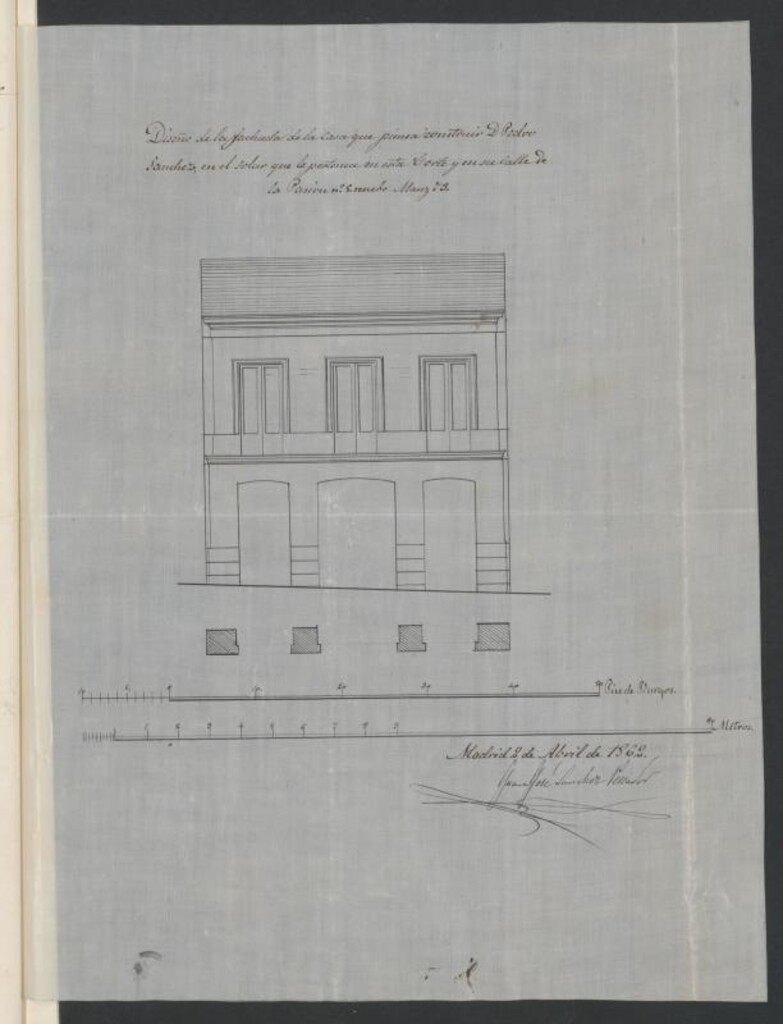 Diseño de la fachada de la casa que piensa construir D. Pedro
Sanchez, en el solar que le pertenece en esta Corte y en su calle de
la Pasion nº 8 nuebo Manz. 73.
Pies de Burgos.
Metros.
Madrid 2 de Abril de 1862.
Juan José Sanchez Pescador